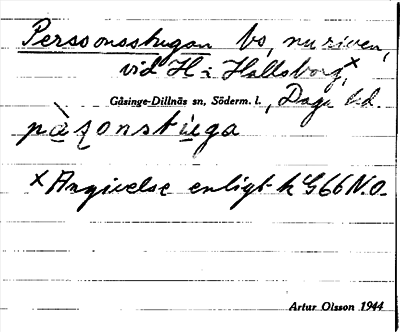 Perssonsstugan bs, nu riven,
vid H i Hallsborg,x
Gåsinge-Dillnäs sn, Söderm. l., Daga hd.
pàʂonstuga
x Angivelse enligt k G66 N.O.
Artur Olsson 1944